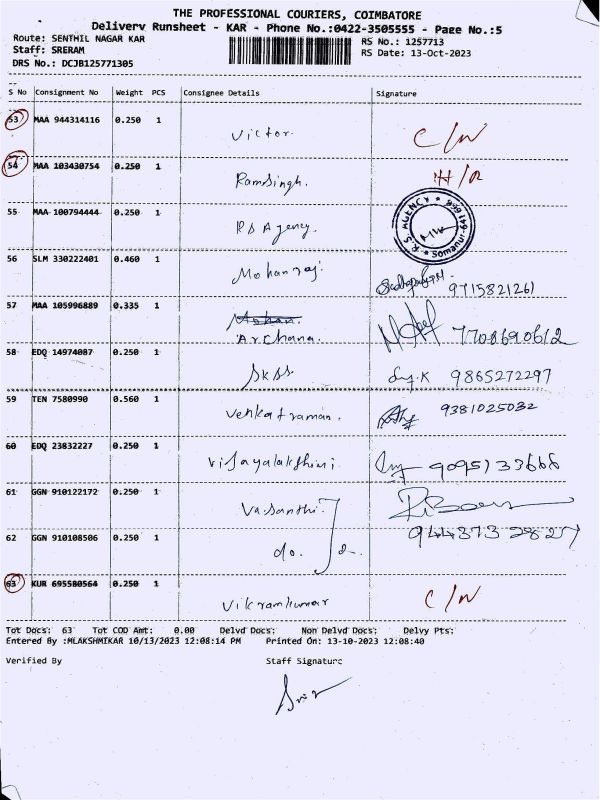 THE PROFESSIONAL COURIERS, COIMBATORE
Delivery Runsheet - KAR - Phone No.:0422-3505555 - Page No.:5
Route: SENTHIL NAGAR KAR RS No.: 1257713
Staff: SRERAM RS Date: 13-Oct-2023
DRS No.: DCJB125771305
S No Consignment No Weight PCS Consignee Details Signature
53 MAA 944314116 0.250 1 Victor C/N
54 MAA 103430754 0.250 1 Ramsingh. H/R
55 MAA 100794444 0.250 1 RS Agency. R.S AGENCY * 641 668 * Somanur MW
56 SLM 330222401 0.460 1 Mohanraj. 9715821261
57 MAA 105996889 0.335 1 Mohan. Archana. 7708690612
58 EDQ 14974087 0.250 1 SKSS 9865272297
59 TEN 7580990 0.560 1 Venkatraman. 9381025032
60 EDQ 23832227 0.250 1 Vijayalakshmi 9095133668
61 GGN 910122172 0.250 1 Vasanthi
62 GGN 910108506 0.250 1 do. 2. 944373 2827
63 KUR 695580564 0.250 1 Vikramkumar C/N
Tot Docs: 63 Tot COD Amt: 0.00 Delvd Docs: Non Delvd Docs: Delvy Pts:
Entered By :MLAKSHMIKAR 10/13/2023 12:08:14 PM Printed On: 13-10-2023 12:08:40
Verified By Staff Signature